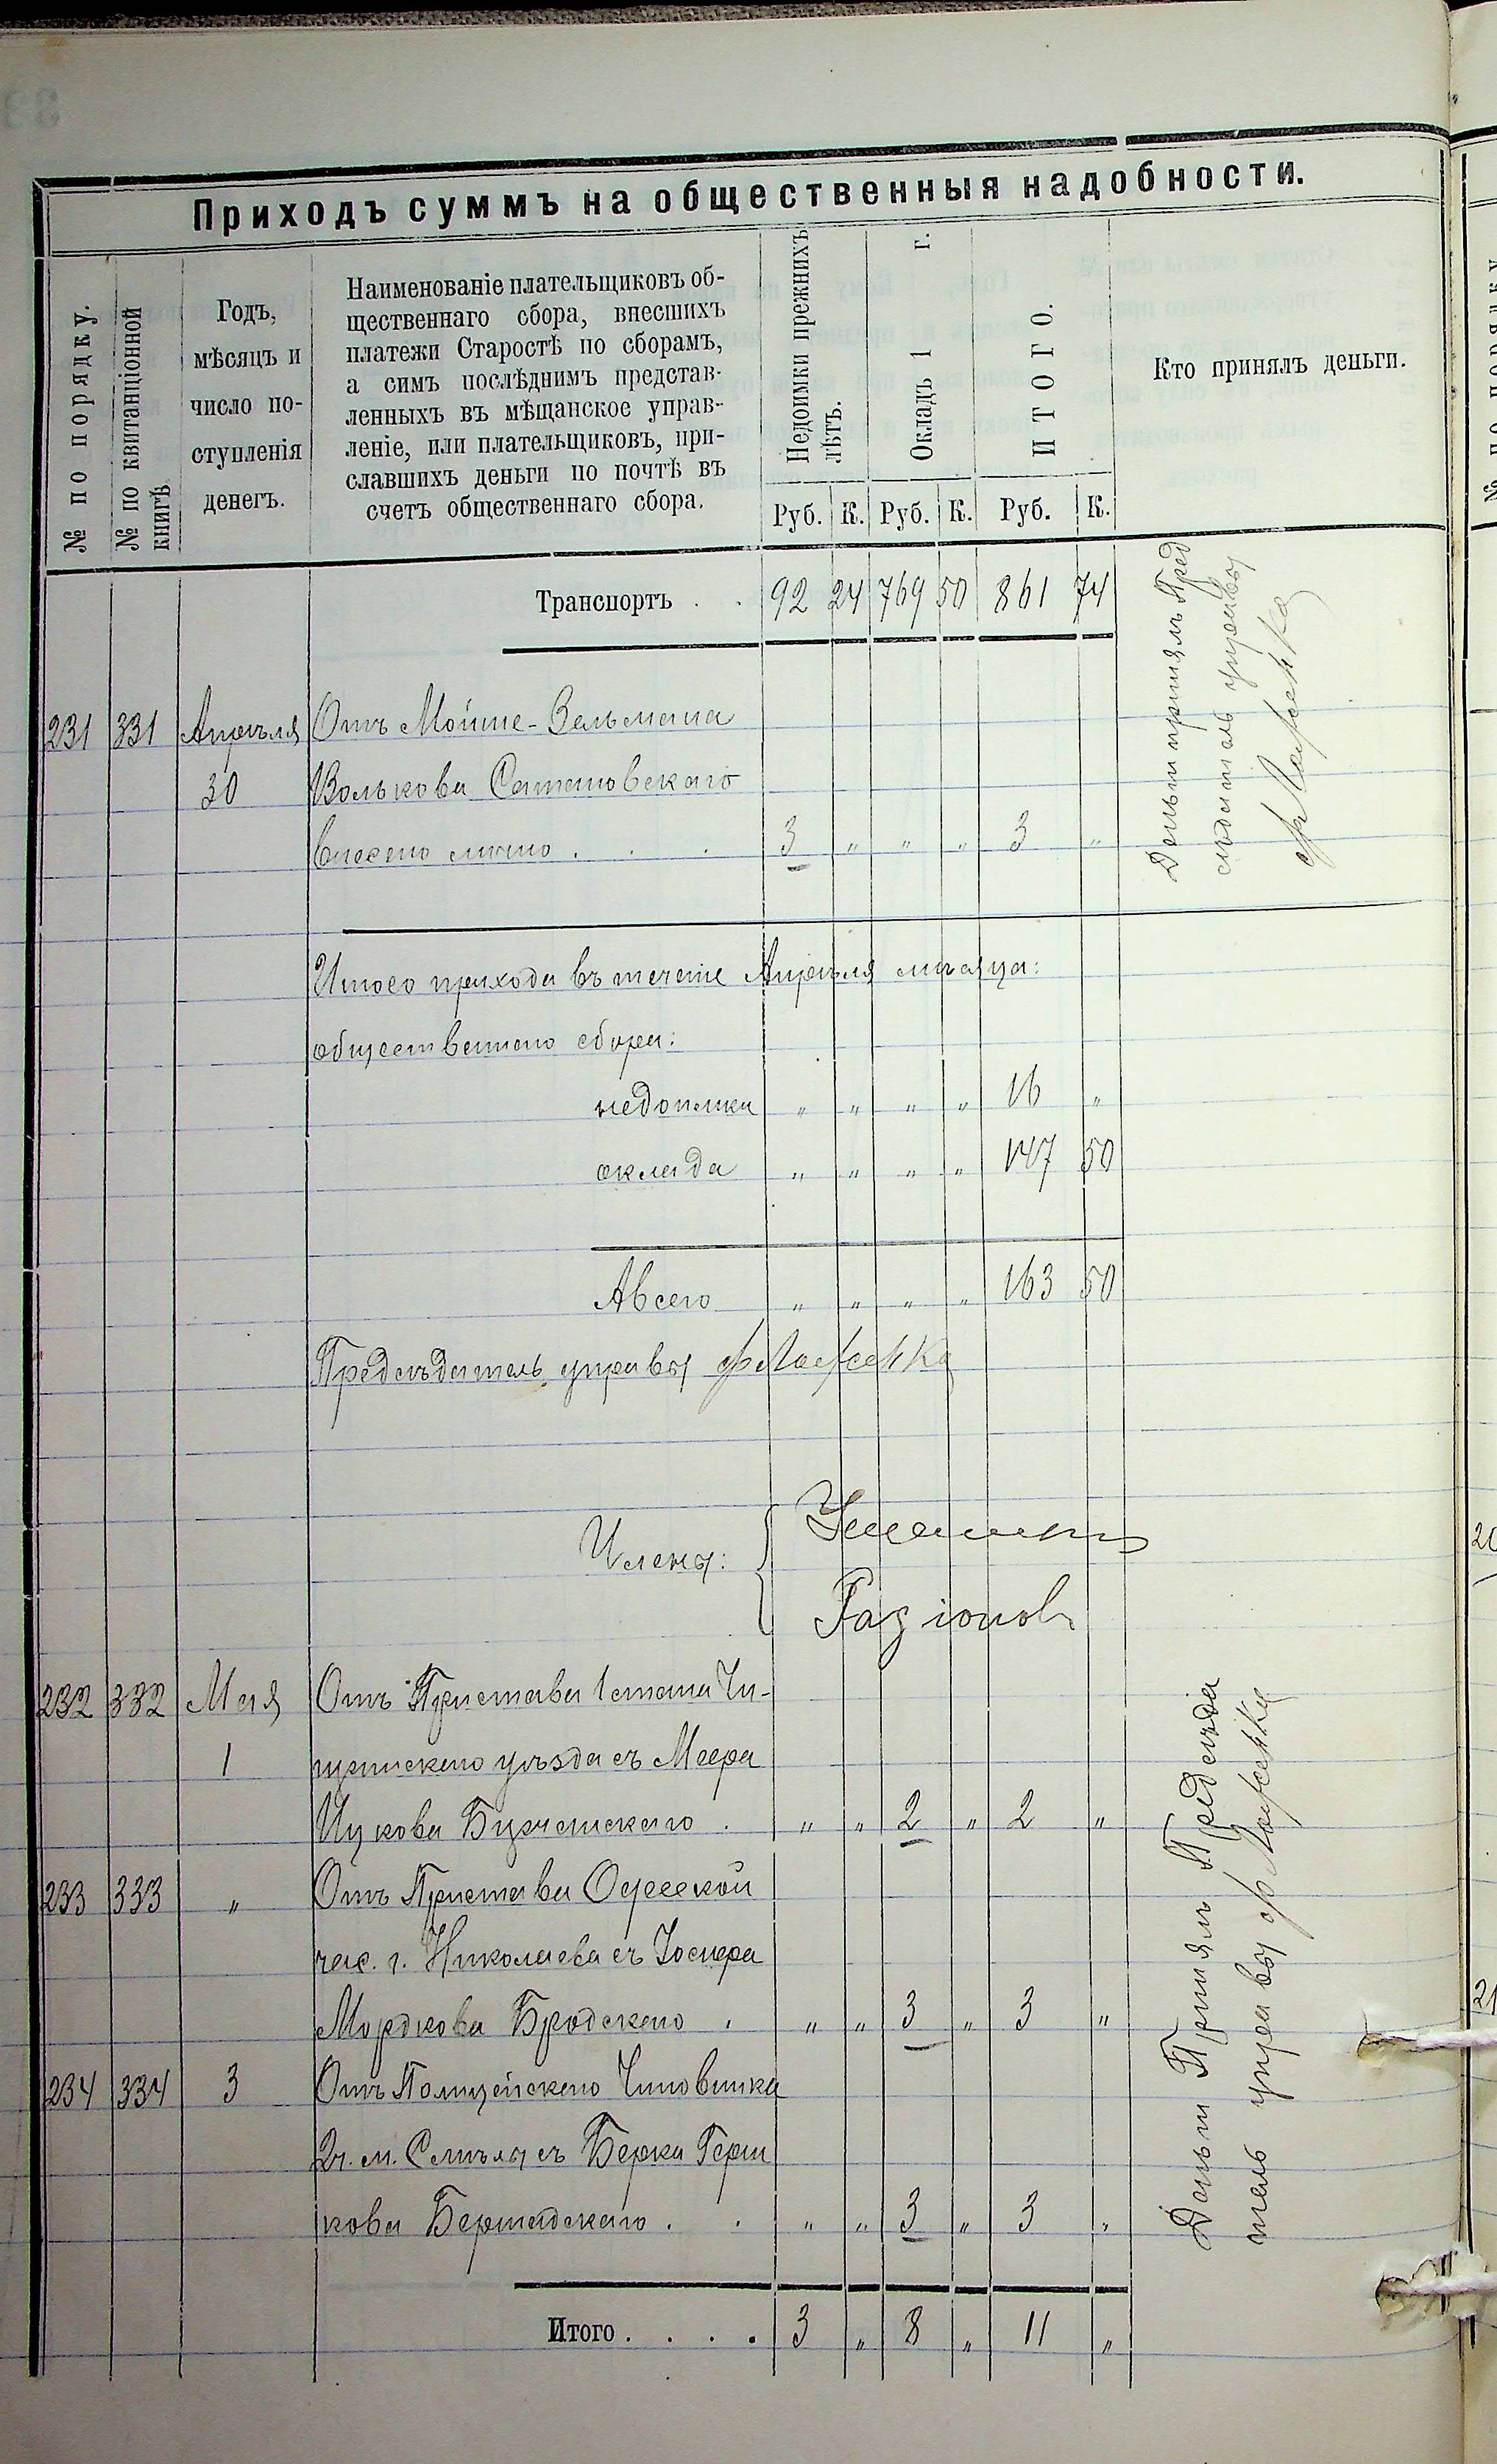 Приходъ суммъ на общественныя надобности.
№ по порядку.
№ по квитанціонной
книгѣ.
Годъ,
мѣсяцъ и
число по-
ступленія
денегъ.
Наименованіе плательщиковъ об-
щественнаго сбора, внесшихъ
платежи Старостѣ по сборамъ,
а симъ послѣднимъ представ-
ленныхъ въ мѣщанское управ-
леніе, или плательщиковъ, при-
славшихъ деньги по почтѣ въ
счетъ общественнаго сбора.
Недоимки прежнихъ
лѣтъ.
Окладъ 1 г.
ИТОГО.
Кто принялъ деньги.
Руб. К. Руб. К. Руб. К.
Транспортъ . . 92 24 769 50 861 74
231 331 Апрѣля Отъ Мойше-Зельмана
30 Волькова Сатановскаго
внесено лично . . . 3 " " " 3 "
Деньги принялъ Пред
сѣдатель управы
Итого прихода въ теченіе Апрѣля мѣсяца:
общественнаго сбора:
недоимки " " " " 16 "
оклада " " " " 147 50
А всего " " " " 163 50
Предсѣдатель управы
Члены:
232 332 Мая Отъ Пристава 1 стана Чи-
1 гиринскаго уѣзда съ Меера
Ицкова Бурчанскаго . " " 2 " 2 "
233 333 " Отъ Пристава Одесской
час. г. Николаева съ
Мордкова Бродскаго . " " 3 " 3 "
234 334 3 Отъ Полицейскаго Чиновника
2 ч. м. Смѣлы съ Берка Герш
кова Бершадскаго . . " " 3 " 3 "
Деньги Принялъ Предсѣда
тель управы
Итого . . . . 3 " 8 " 11 "